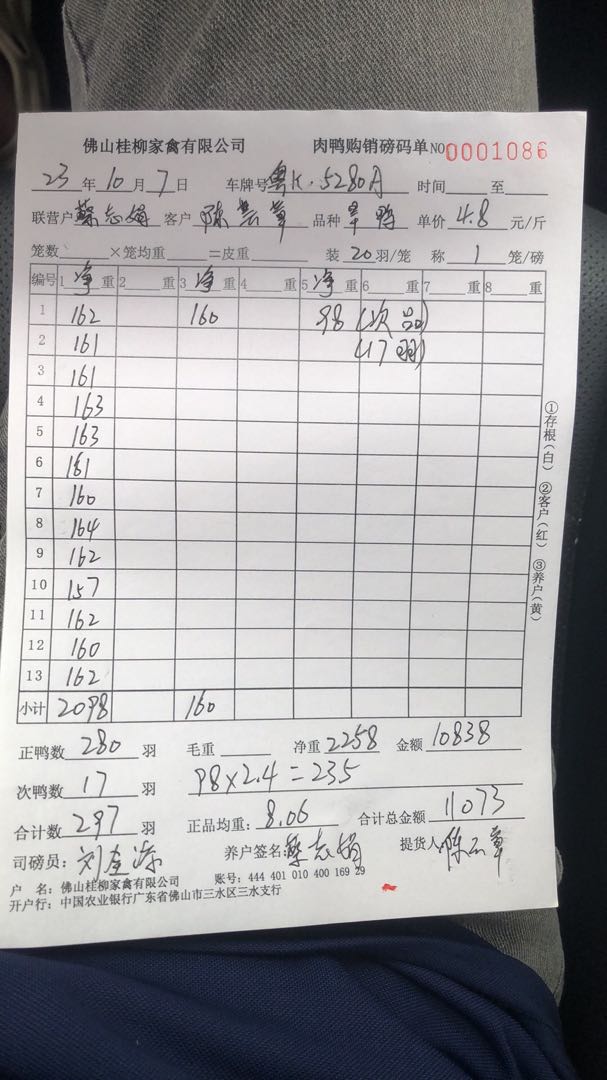 佛山桂柳家禽有限公司 肉鸭购销磅码单 NO 0001086
23 年 10 月 7 日 车牌号 粤K·5280A 时间 至
联营户 蔡志娟 客户 陈芸章 品种 羊鸭 单价 4.8 元/斤
笼数 ×笼均重 =皮重 装 20 羽/笼 称 1 笼/磅
编号 1 净 重 2 重 3 净 重 4 重 5 净 重 6 重 7 重 8 重
1 162 160 98 (次品)
2 161 (17羽)
3 161
4 163
5 163
6 161
7 160
8 164
9 162
10 157
11 162
12 160
13 162
小计 2098 160
正鸭数 280 羽 毛重 净重 2258 金额 10838
次鸭数 17 羽 98×2.4=235
合计数 297 羽 正品均重: 8.06 合计总金额 11073
司磅员: 刘 养户签名: 蔡志娟 提货人 陈云章
户 名: 佛山桂柳家禽有限公司 账号: 444 401 010 400 169 29
开户行: 中国农业银行广东省佛山市三水区三水支行
①存根(白) ②客户(红) ③养户(黄)